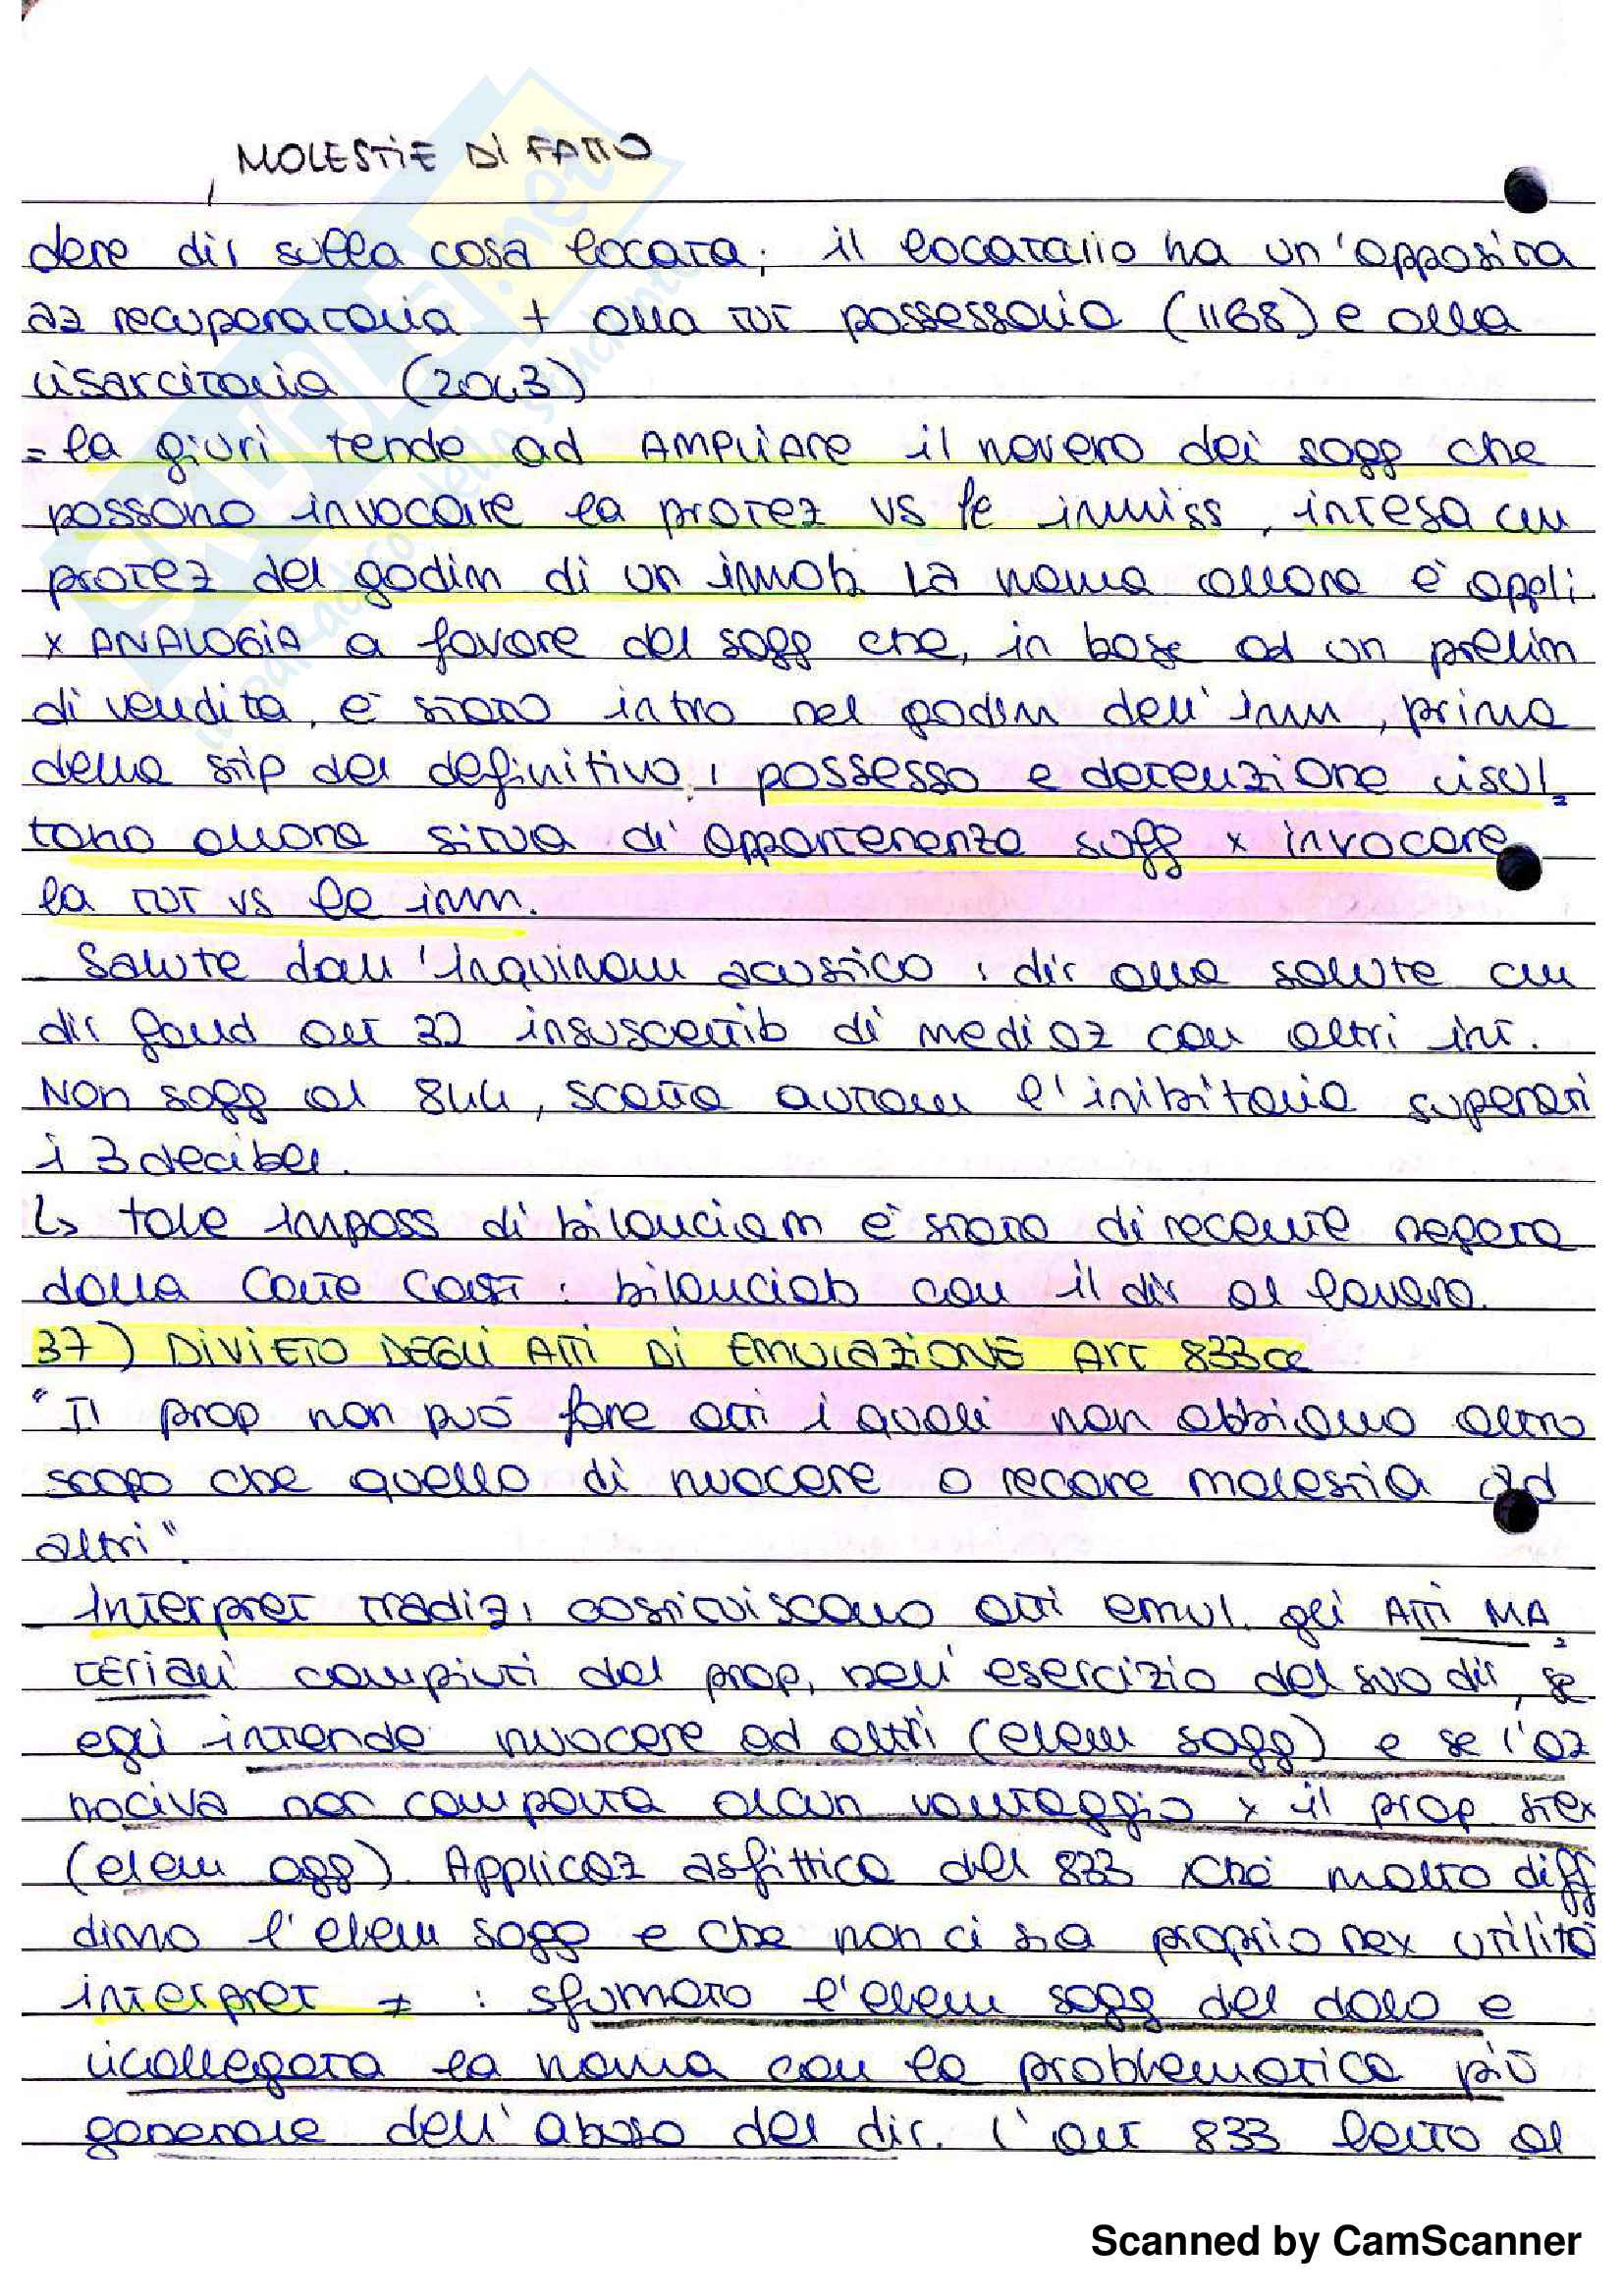 MOLESTIE DI FATTO
dere dir sulla cosa locata; il locatario ha un'apposita
az recuperatoria + alla tut possessoria (1168) e alla
risarcitoria (2043)
= la giuri tende ad AMPLIARE il novero dei sogg che
possono invocare la protez vs le immiss, intesa cm
protez del godim di un immob. La norma allora è appli
x ANALOGIA a favore del sogg che, in base ad un prelim
di vendita, è stato intro nel godim dell'imm, prima
della stip del definitivo; possesso e detenzione risul
tano allora situa di appartenenza suff x invocare
la tut vs le imm.
- Salute dall'inquinam acustico: dir alla salute cm
dir fond art 32 insuscettib di mediaz con altri int.
Non sogg al 844, scatta autom l'inibitoria superati
i 3 decibel.
↳ tale imposs di bilanciam è stata di recente negata
dalla Corte Cost: bilanciab con il dir al lavoro.
37) DIVIETO DEGLI ATTI DI EMULAZIONE Art 833 cc
"Il prop non può fare atti i quali non abbiano altro
scopo che quello di nuocere o recare molestia ad
altri".
- Interpret tradiz: costituiscono atti emul. gli ATTI MA
TERIALI compiuti dal prop, nell'esercizio del suo dir, se
egli intende nuocere ad altri (elem sogg) e se l'az
nociva non comporta alcun vantaggio x il prop stex
(elem ogg). Applicaz asfittica del 833 xchè molto diff
dimo l'elem sogg e che non ci sia proprio nex utilità
interpret ≠ : sfumato l'elem sogg del dolo e
ricollegata la norma con la problematica più
generale dell'abuso del dir. L'art 833 letto al
Scanned by CamScanner